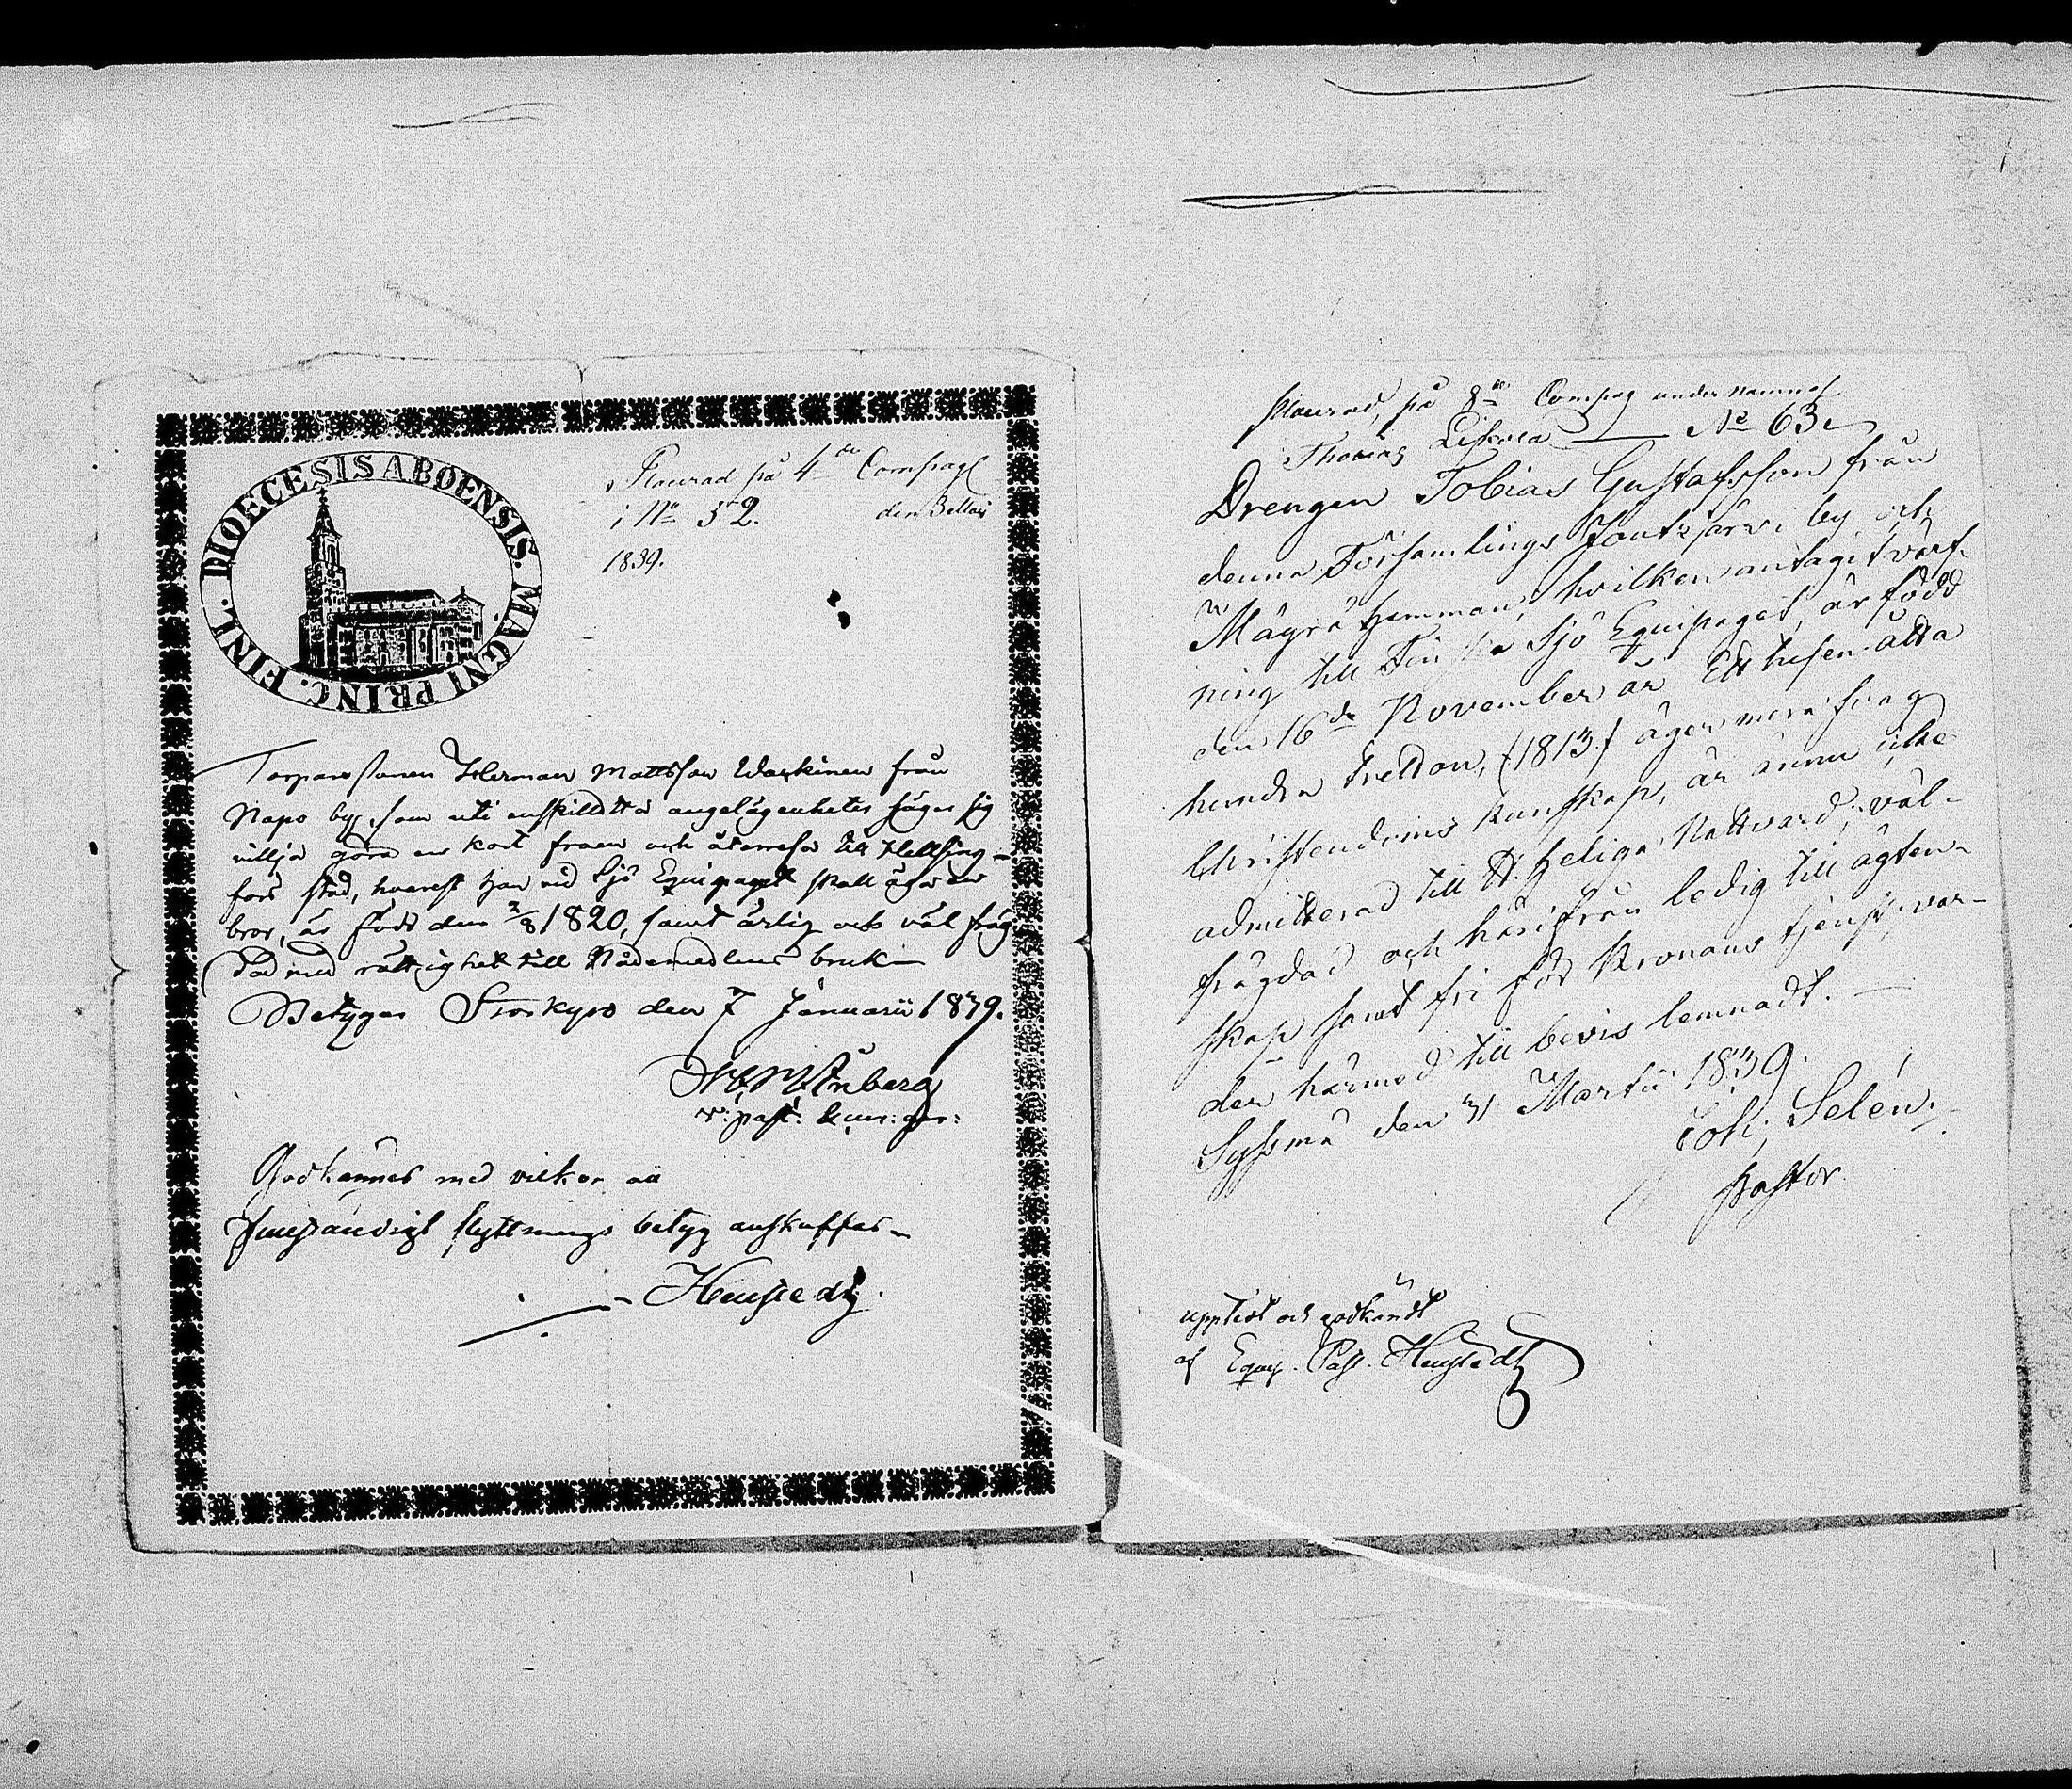 DIOECESIS ABOENSIS. MAGNI PRINC. FINL.
Placerad på 4de Compagt
i No 52. den
1839.
Torparesonen Herman Mattsson Warkinen från
Napo by, som uti enskildta angelägenheter säger sig
villja göra en kort fram och återresa till Helsing-
fors stad, hvarest han vid Sjö Equipaget skall äga en
bror, är född den 2/8 1820, samt ärlig och väl fräg-
dad med rättighet till Nådemedlens bruk
Betygar Storkyro den 7 Januarii 1839.
v: past:
Godkännes med vilkor att
flyttnings betyg anskaffas
Henstedt.
Placerad på 8de Compag under namnet
Thomas No 63
Drengen Tobias Gustafsson från
denna Församlings Joutsjärvi by och
Mägrä Hemman, hvilken antagit värf-
ning till Finska Sjö Equipaget, är född
den 16de November år Ett tusen åtta
hundra tretton, (1813) äger mera svag
Christendoms kunskap, är ännu icke
admitterad till H. Heliga Nattvard, väl-
frägdad och härifrån ledig till ägten-
skap samt fri för Kronans tjenst; var-
der härmed till bevis lemnadt.
Syssmä den 31 Martii 1839.
Joh: Selén
Pastor.
uppläst och godkändt
af Equip. Past. Henstedt